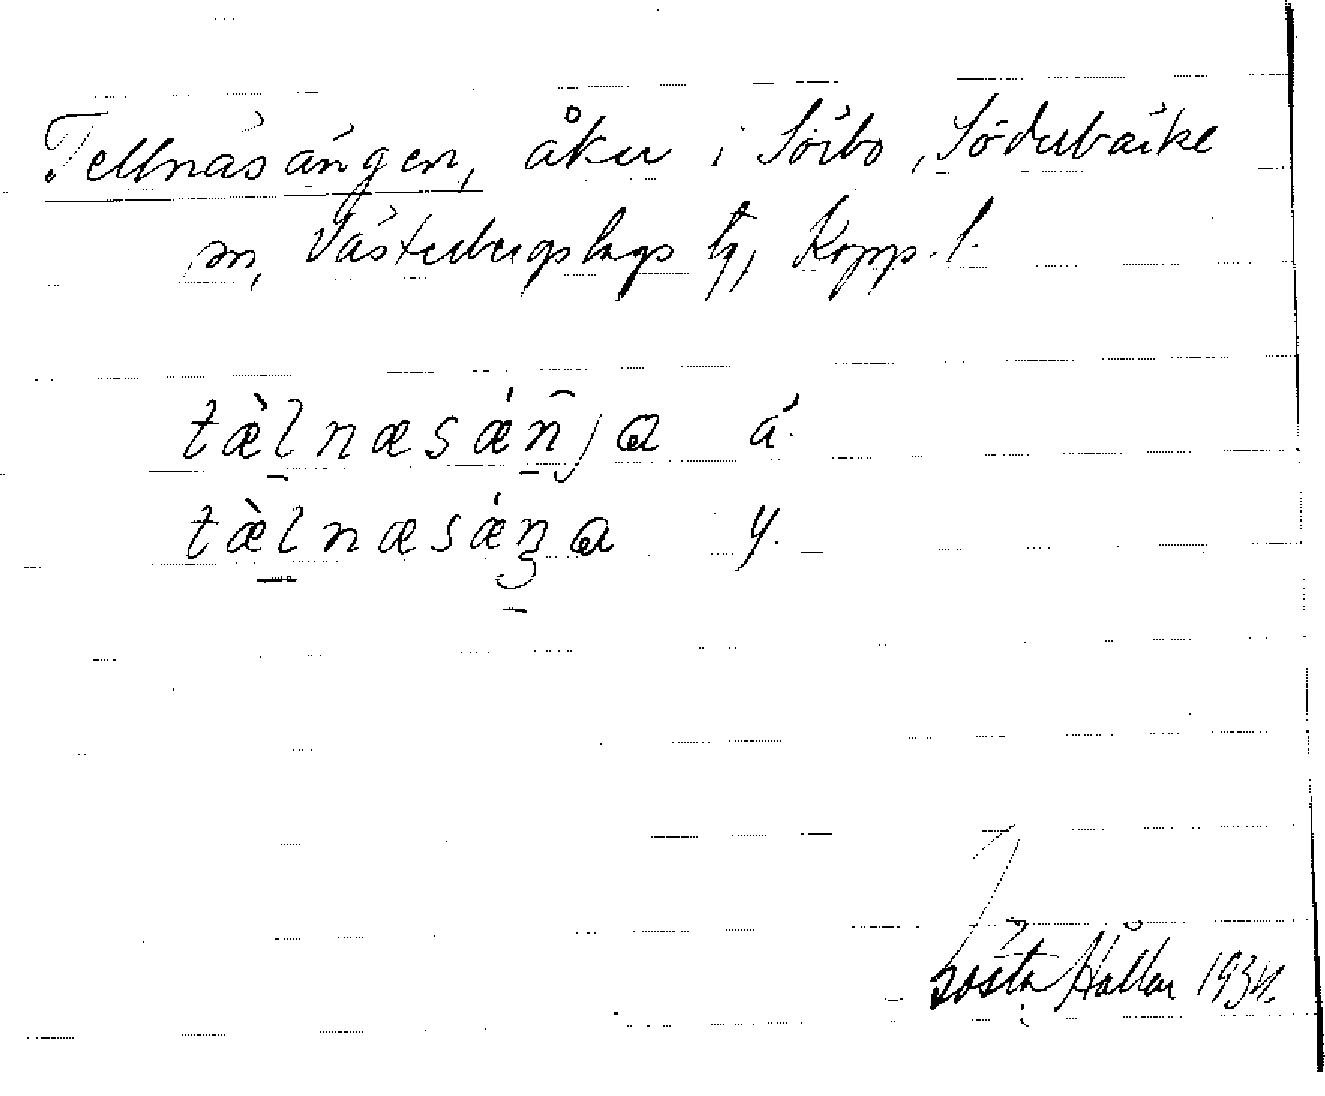 Tellnäsängen, åker i Sörbo, Söderbärke
sn, Västerbergslags tg, Kopp. l.
tæ̀lnæsǽn̂ja ä.
tæ̀lnæsǽŋa y.
Gösta Hållan 1934.